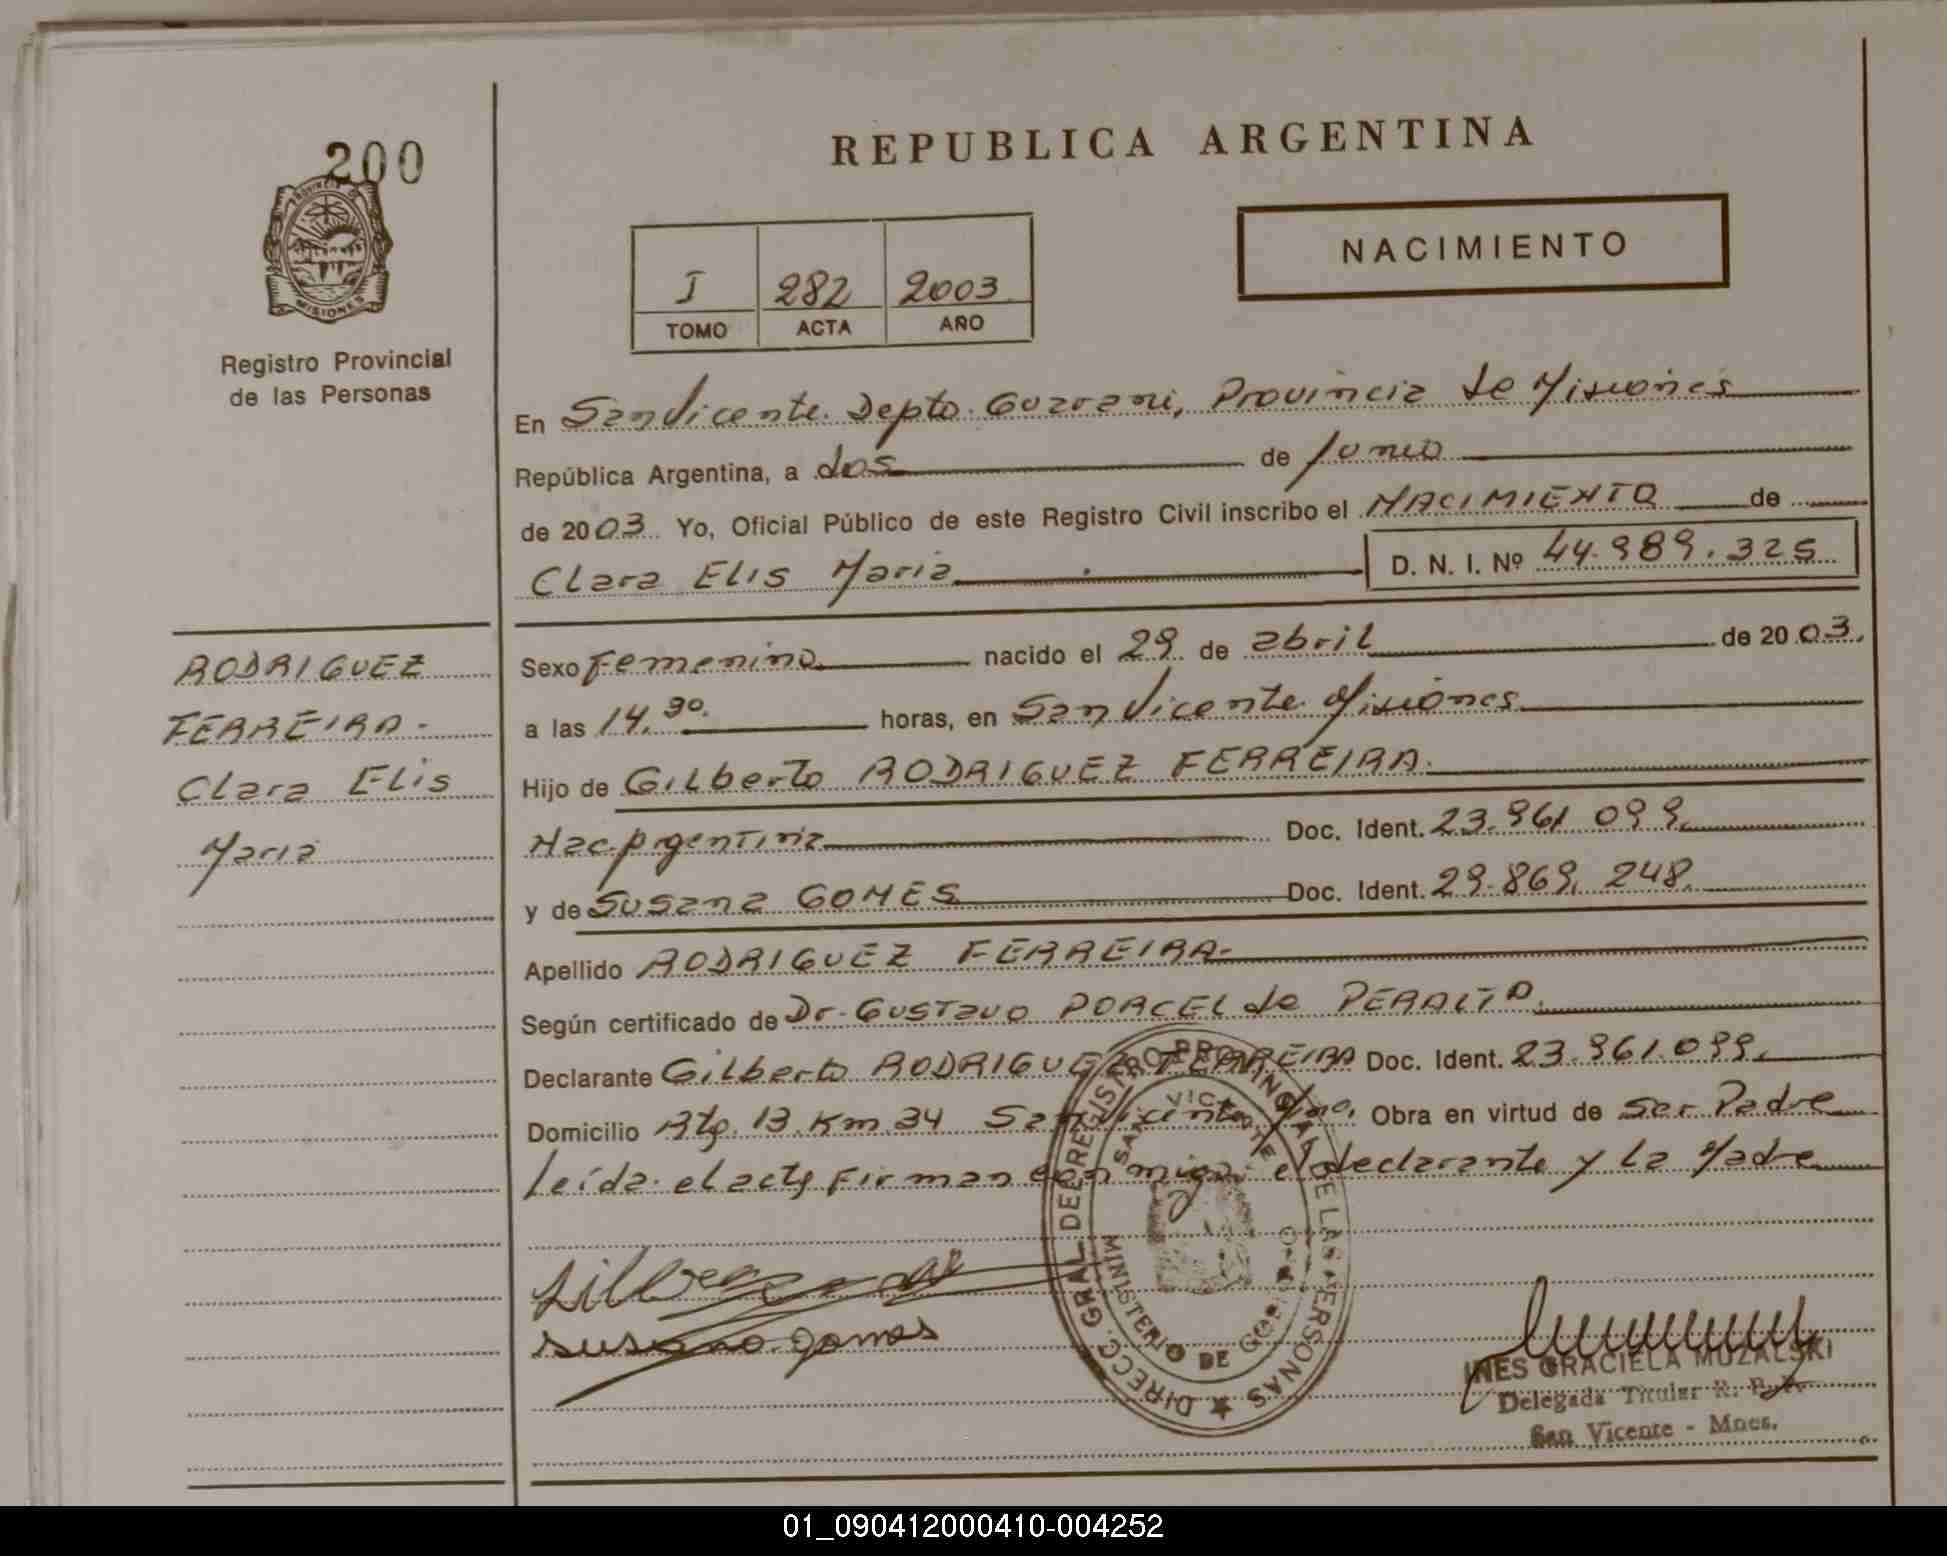 200
PROVINCIA DE
MISIONES
Registro Provincial
de las Personas
REPUBLICA ARGENTINA
NACIMIENTO
I 282 2003
TOMO ACTA AÑO
En San Vicente. Depto. Guarani, Provincia de Misiones
República Argentina, a dos de Junio
de 2003. Yo, Oficial Público de este Registro Civil inscribo el NACIMIENTO de
Clara Elis Maria D. N. I. Nº 44.989.325
RODRIGUEZ
FERREIRA-
Clara Elis
Maria
Sexo Femenino nacido el 29 de abril de 2003.
a las 14,30. horas, en San Vicente Misiones
Hijo de Gilberto RODRIGUEZ FERREIRA.
Nac. Argentina Doc. Ident. 23.961.099.
y de Susana GOMES Doc. Ident. 29.869.248.
Apellido RODRIGUEZ FERREIRA-
Según certificado de Dr. Gustavo PORCEL de PERALTA.
Declarante Gilberto RODRIGUEZ FERREIRA Doc. Ident. 23.961.099.
Domicilio Rta. 13. Km. 34 San Vicente Mnes. Obra en virtud de ser Padre
leída el acta firman con migo: el declarante y la Madre
DIRECC. GRAL. DE REGISTRO PROVINCIAL DE LAS PERSONAS
SAN VICENTE
MINISTERIO DE GOBIERNO
susana gomes
INES GRACIELA MUZALSKI
Delegada Titular R. P. P.
San Vicente - Mnes.
01_090412000410-004252